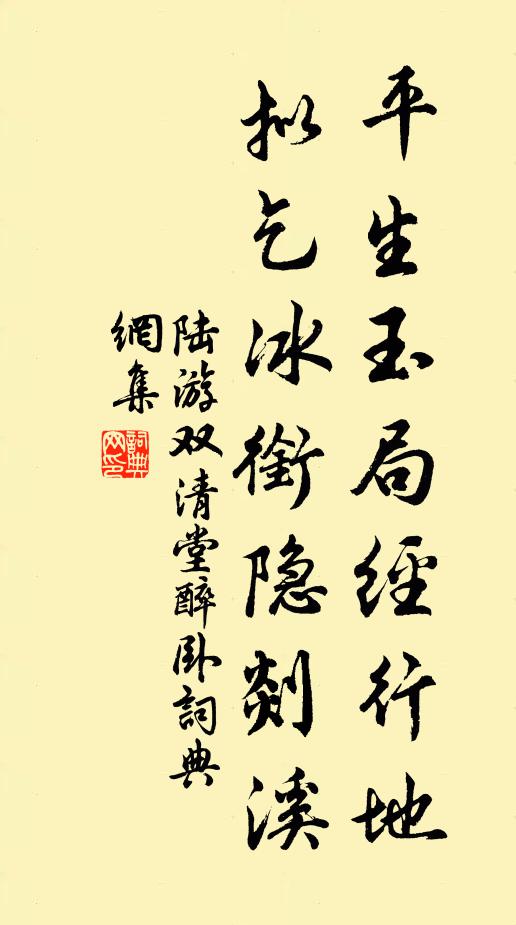 平生玉局經行地
拟乞冰銜隐剡溪
陆游双清堂醉卧詞典
網集
詞典
网印